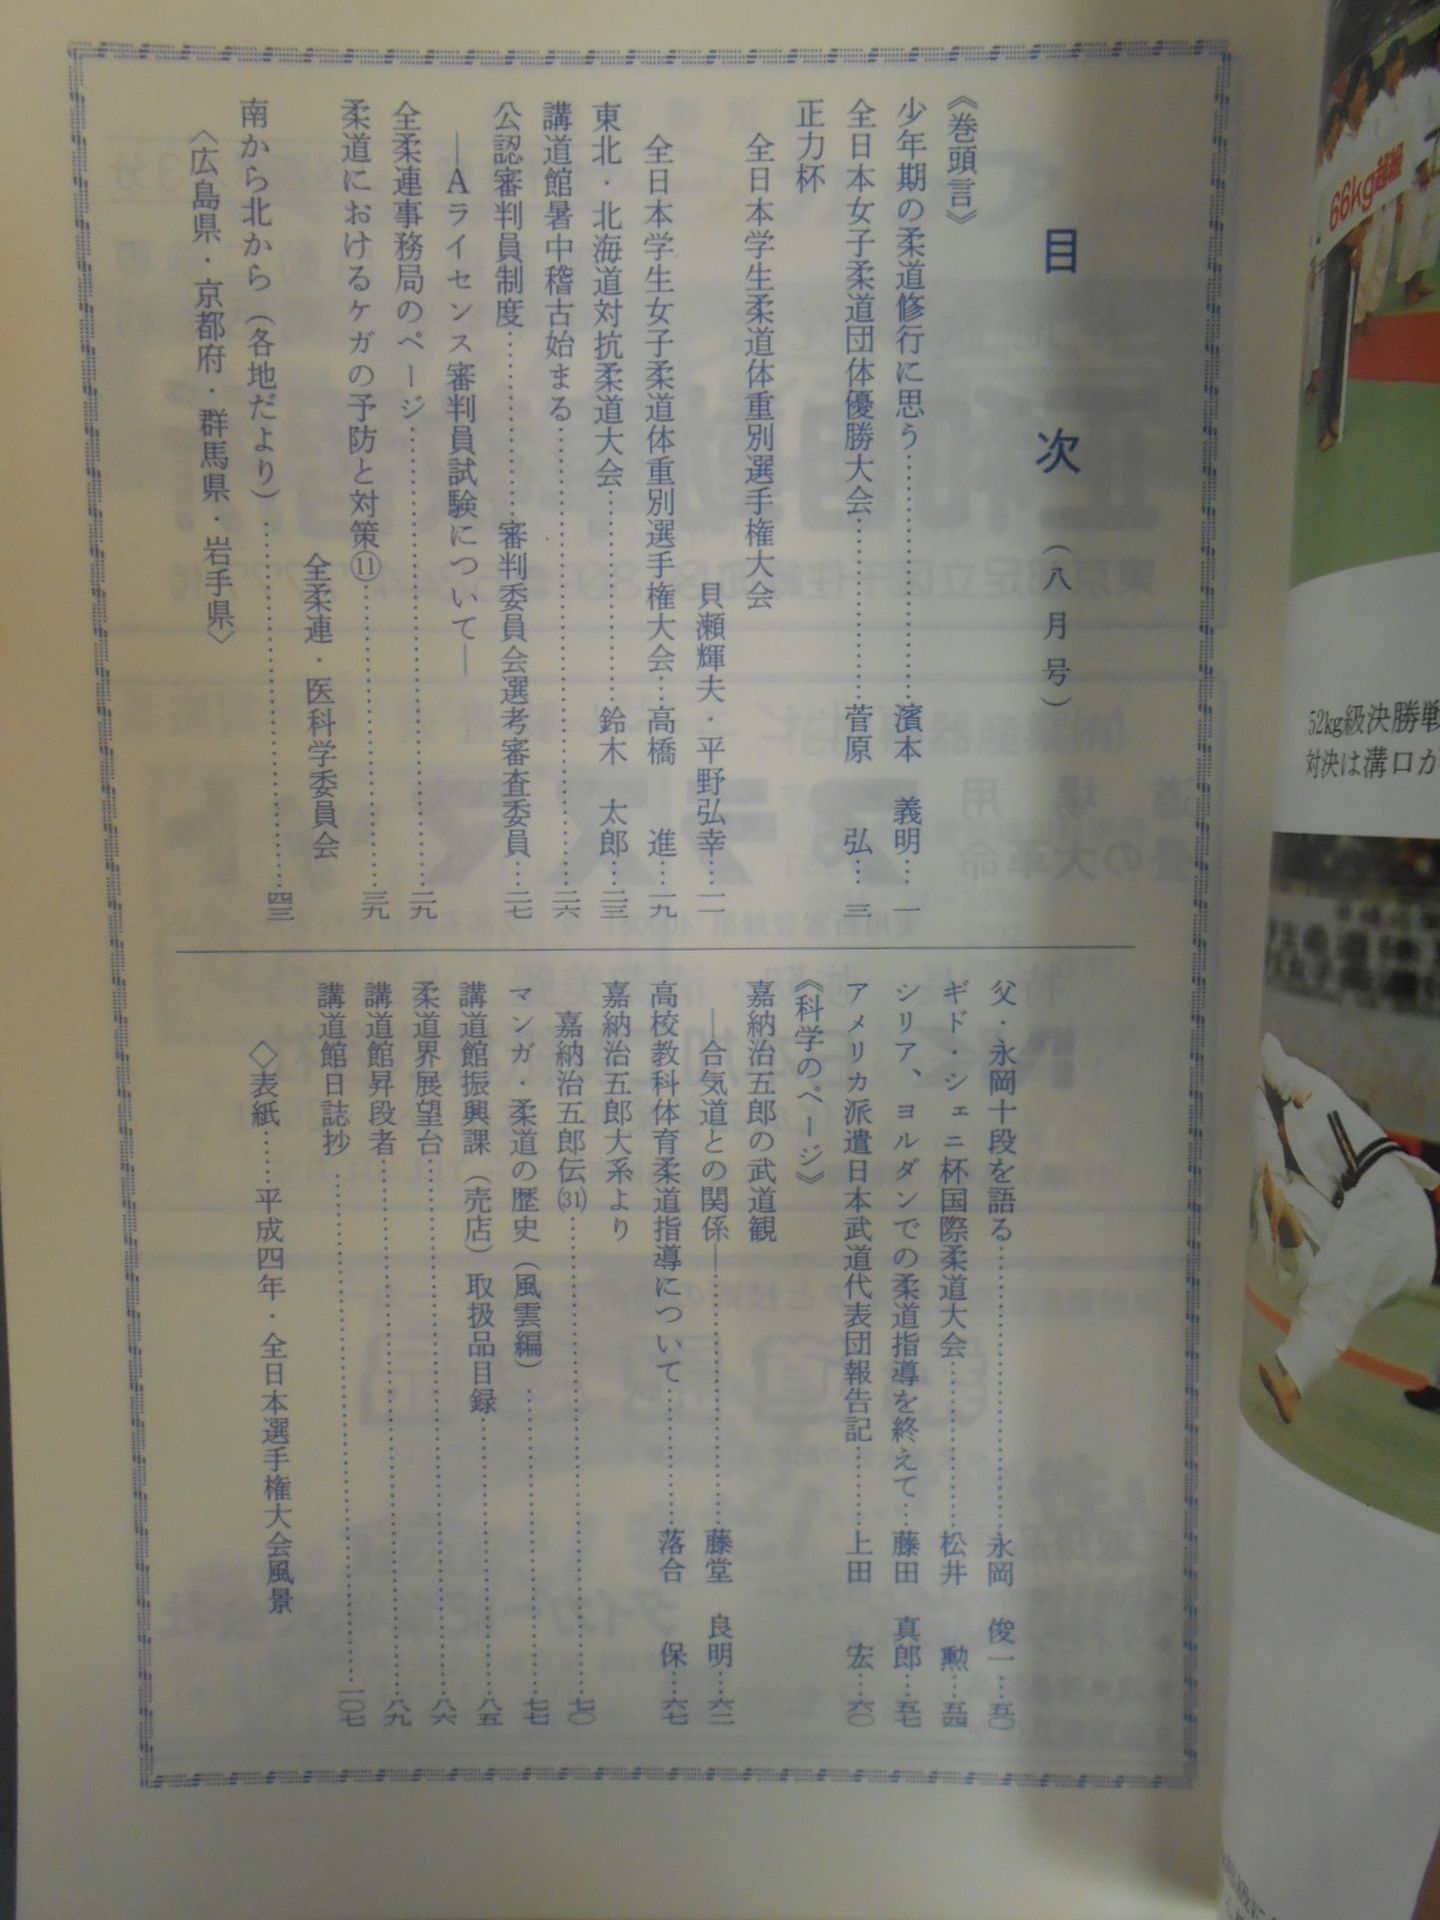 目次（八月号）
《巻頭言》
少年期の柔道修行に思う……………濱本　義明…一
全日本女子柔道団体優勝大会……………菅原　弘…三
正力杯
全日本学生柔道体重別選手権大会
貝瀬輝夫・平野弘幸…一一
全日本学生女子柔道体重別選手権大会…高橋　進…一九
東北・北海道対抗柔道大会……………鈴木　太郎…二三
講道館暑中稽古始まる……………二六
公認審判員制度……………審判委員会選考審査委員…二七
―Aライセンス審判員試験について―
全柔連事務局のページ……………二九
柔道におけるケガの予防と対策⑪……………三九
全柔連・医科学委員会
南から北から（各地だより）……………四三
〈広島県・京都府・群馬県・岩手県〉
父・永岡十段を語る……………永岡　俊一…五〇
ギド・シェニ杯国際柔道大会……………松井　勲…五四
シリア、ヨルダンでの柔道指導を終えて…藤田　真郎…五七
アメリカ派遣日本武道代表団報告記………上田　宏…六〇
《科学のページ》
嘉納治五郎の武道観
―合気道との関係―……………藤堂　良明…六二
高校教科体育柔道指導について……………落合　保…六七
嘉納治五郎大系より
嘉納治五郎伝(31)……………七〇
マンガ・柔道の歴史（風雲編）……………七七
講道館振興課（売店）取扱品目録……………八五
柔道界展望台……………八六
講道館昇段者……………八九
講道館日誌抄……………一〇七
◇表紙……平成四年・全日本選手権大会風景
66kg超級
52kg級決勝戦
対決は溝口が